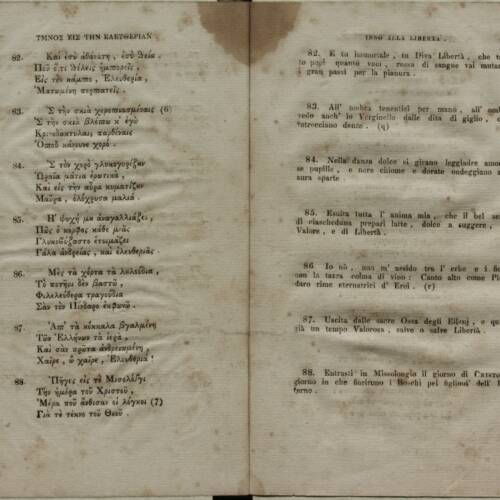 ΥΜΝΟΣ ΕΙΣ ΤΗΝ ΕΛΕΥΘΕΡΙΑΝ
82. Καὶ ἐσὺ ἀθάνατη, ἐσὺ θεία,
Ποῦ ὅ,τι θέλεις ἠμπορεῖς,
Εἰς τὸν κάμπο, Ἐλευθερία,
Ματωμένη περπατεῖς.
83. Σ τὴ σκιὰ χεροπιασμέναις (6)
Σ τὴ σκιὰ βλέπω κ' ἐγὼ
Κρινοδάκτυλαις παρθέναις
Ὁποῦ κάνουνε χορό.
84. Σ τὸν χορὸ γλυκογυρίζουν
Ὡραῖα μάτια ἐρωτικὰ,
Καὶ εἰς τὴν αὔρα κυματίζουν
Μαῦρα, ὁλόχρυσα μαλλιά.
85. Ἡ ψυχή μου ἀναγαλλιάζει,
Πῶς ὁ κόρφος κάθε μιᾶς
Γλυκοβύζαστο ἑτοιμάζει
Γάλα ἀνδρείας, καὶ ἐλευθεριᾶς.
86. Μὲς τὰ χόρτα τὰ λουλούδια,
Τὸ ποτῆρι δὲν βαστῶ,
Φιλελεύθερα τραγούδια
Σὰν τὸν Πίνδαρο ἐκφωνῶ.
87. Ἀπ' τὰ κόκκαλα βγαλμένη
Τῶν Ἑλλήνων τὰ ἱερὰ,
Καὶ σὰν πρῶτα ἀνδρειωμένη,
Χαῖρε, ὢ χαῖρε, Ἐλευθεριά!
88. Πῆγες εἰς τὸ Μισολόγγι
Τὴν ἡμέρα τοῦ Χριστοῦ,
Μέρα ποῦ ἄνθισαν οἱ λόγκοι (7)
Γιὰ τὸ τέκνο τοῦ Θεοῦ.
INNO ALLA LIBERTA'.
82. E tu immortale, tu Diva Libertà, che
puoi quanto vuoi, rossa di sangue vai
gran passi per la pianura.
83. All' ombra tenentici per mano, all'
vedo anch' io Verginelle dalle dita di giglio,
intrecciano danze. (q)
84. Nella danza dolce si girano leggiadre
se pupille, e nere chiome e dorate ondeggiano
aura sparte.
85. Esulta tutta l' anima mia, che il bel
di ciascheduna prepari latte, dolce a suggere,
Valore, e di Libertà.
86. Io nò, non m' assido tra l' erbe e i
con la tazza colma di vino: Canto alto come
daro rime eternatrici d' Eroi. (r)
87. Uscita dalle sacre Ossa degli Elleni, e
già un tempo Valorosa, salve o salve Libertà.
88. Entrasti in Missolongio il giorno di
giorno in che fiorirono i Boschi pel figliuol dell'
terno.